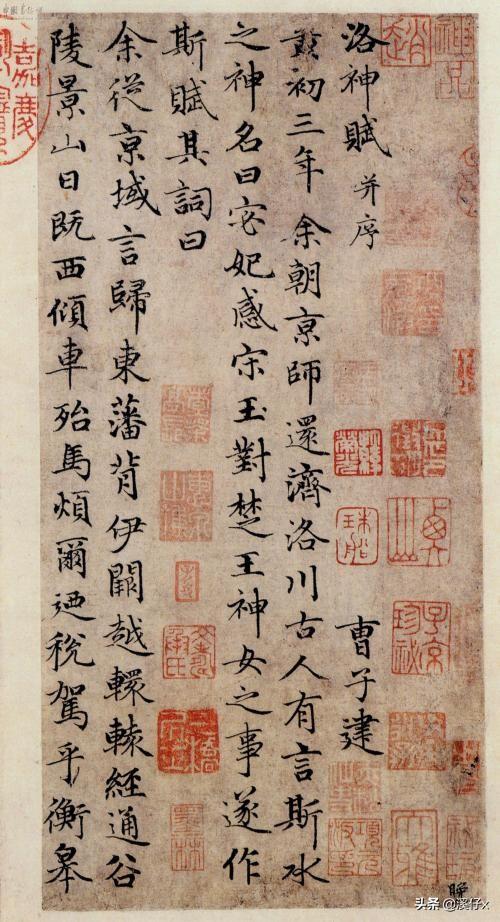 洛神賦 并序 曹子建
黃初三年余朝京師還濟洛川古人有言斯水
之神名曰宓妃感宋玉對楚王神女之事遂作
斯賦其詞曰
余從京域言歸東藩背伊闕越轘轅經通谷
陵景山日既西傾車殆馬煩爾迺稅駕乎衡皋
神品
趙
嘉慶
珠船
子京珍祕
墨林
头条 @
仔x